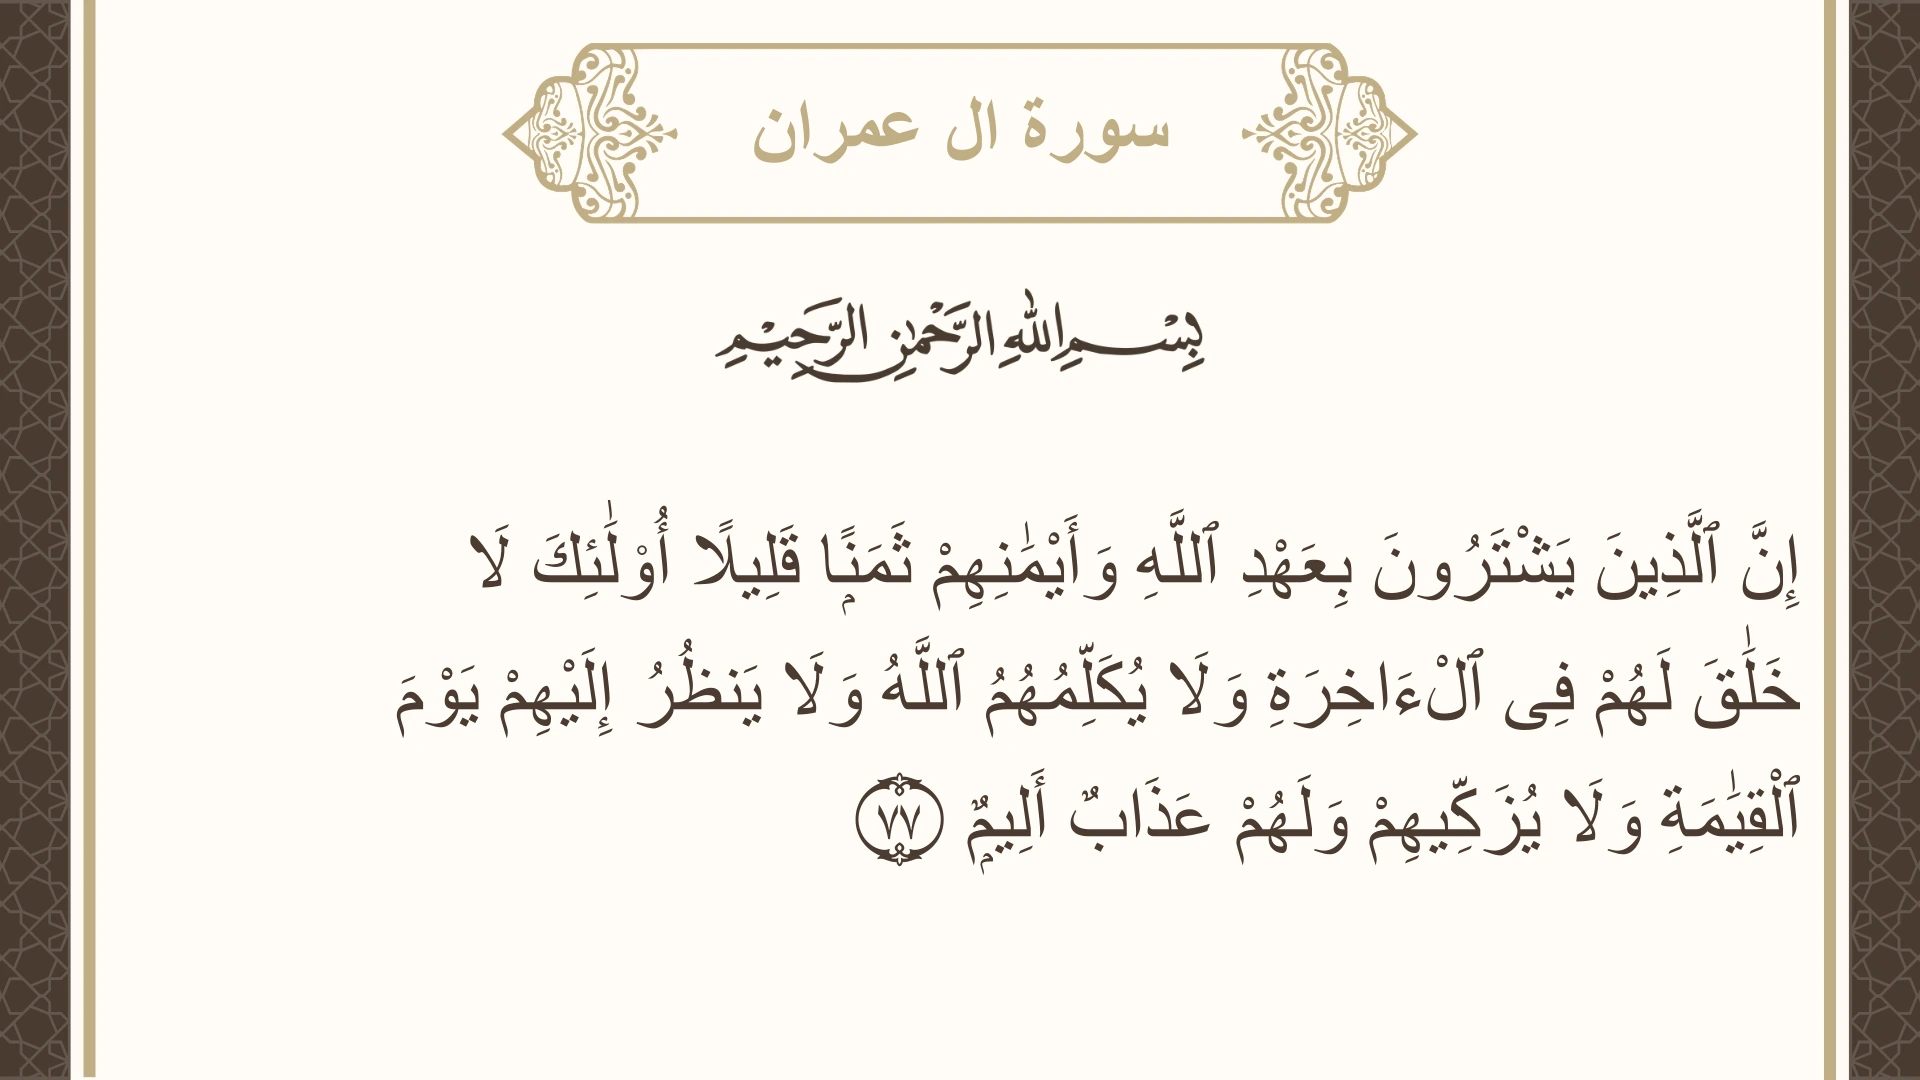 سورة ال عمران
بِسْمِ اللهِ الرَّحْمٰنِ الرَّحِيْمِ
إِنَّ ٱلَّذِينَ يَشْتَرُونَ بِعَهْدِ ٱللَّهِ وَأَيْمَٰنِهِمْ ثَمَنًۭا قَلِيلًا أُو۟لَٰٓئِكَ لَا
خَلَٰقَ لَهُمْ فِى ٱلْءَاخِرَةِ وَلَا يُكَلِّمُهُمُ ٱللَّهُ وَلَا يَنظُرُ إِلَيْهِمْ يَوْمَ
ٱلْقِيَٰمَةِ وَلَا يُزَكِّيهِمْ وَلَهُمْ عَذَابٌ أَلِيمٌۭ ٧٧